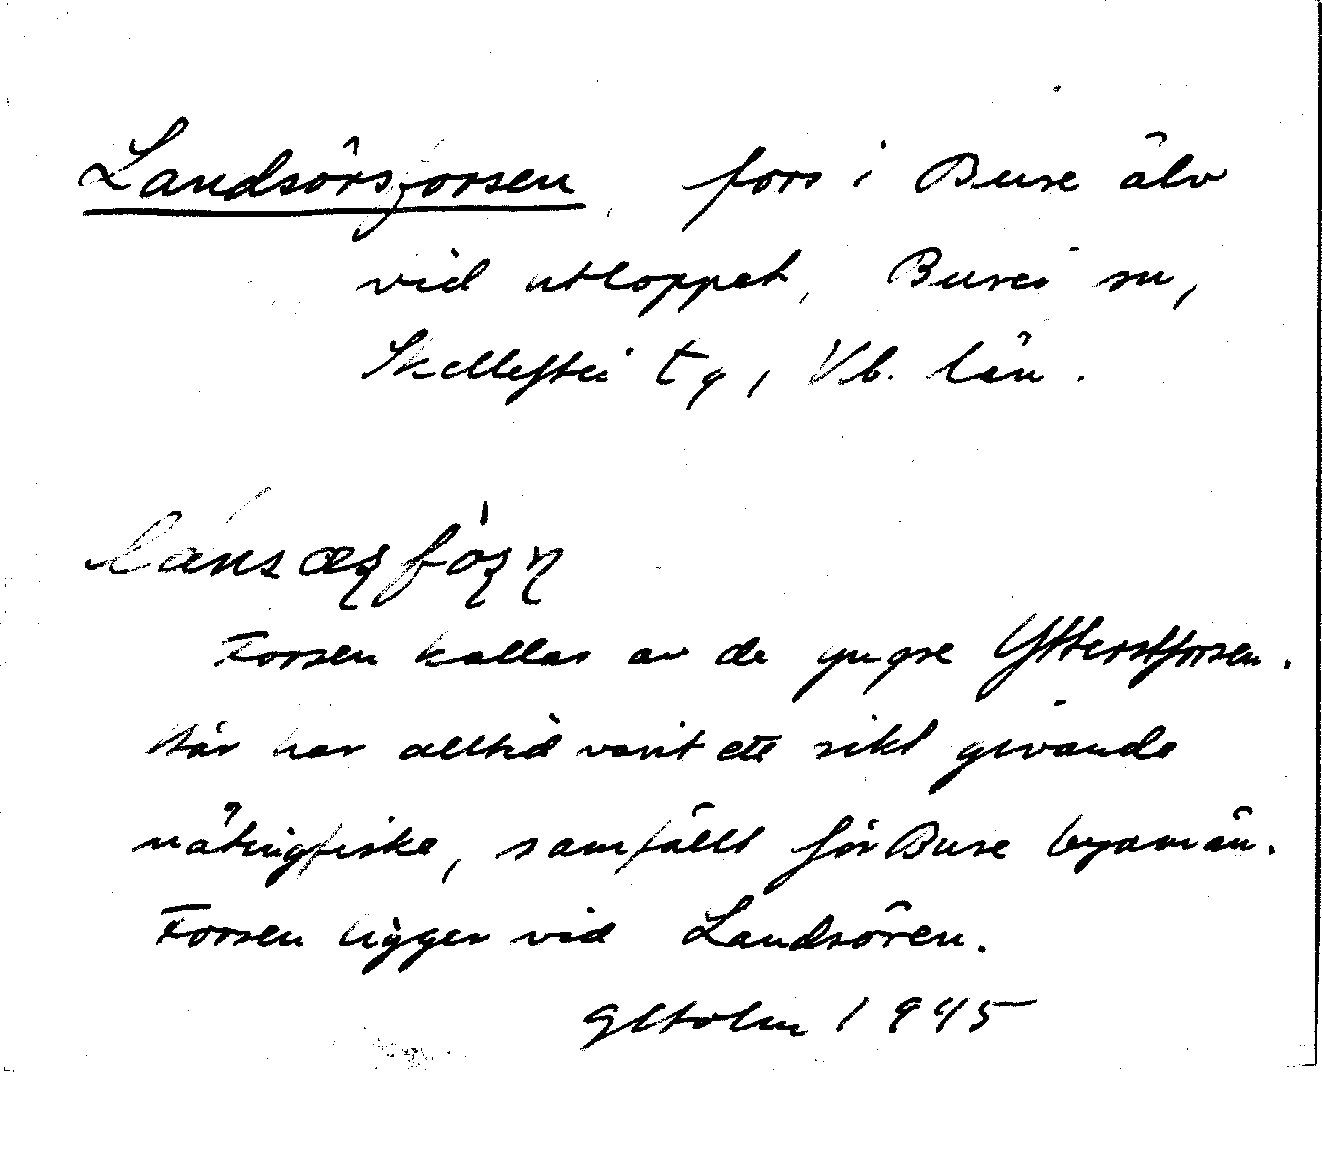 Landsörsforsen, fors i Bure älv
vid utloppet, Bureå sn,
Skellefteå tg, Vb. län.
Forsen kallas av de yngre Ytterstforsen.
Här har alltid varit ett rikt givande
nätingfiske, samfällt för Bure byamän.
Forsen ligger vid Landsören.
1945